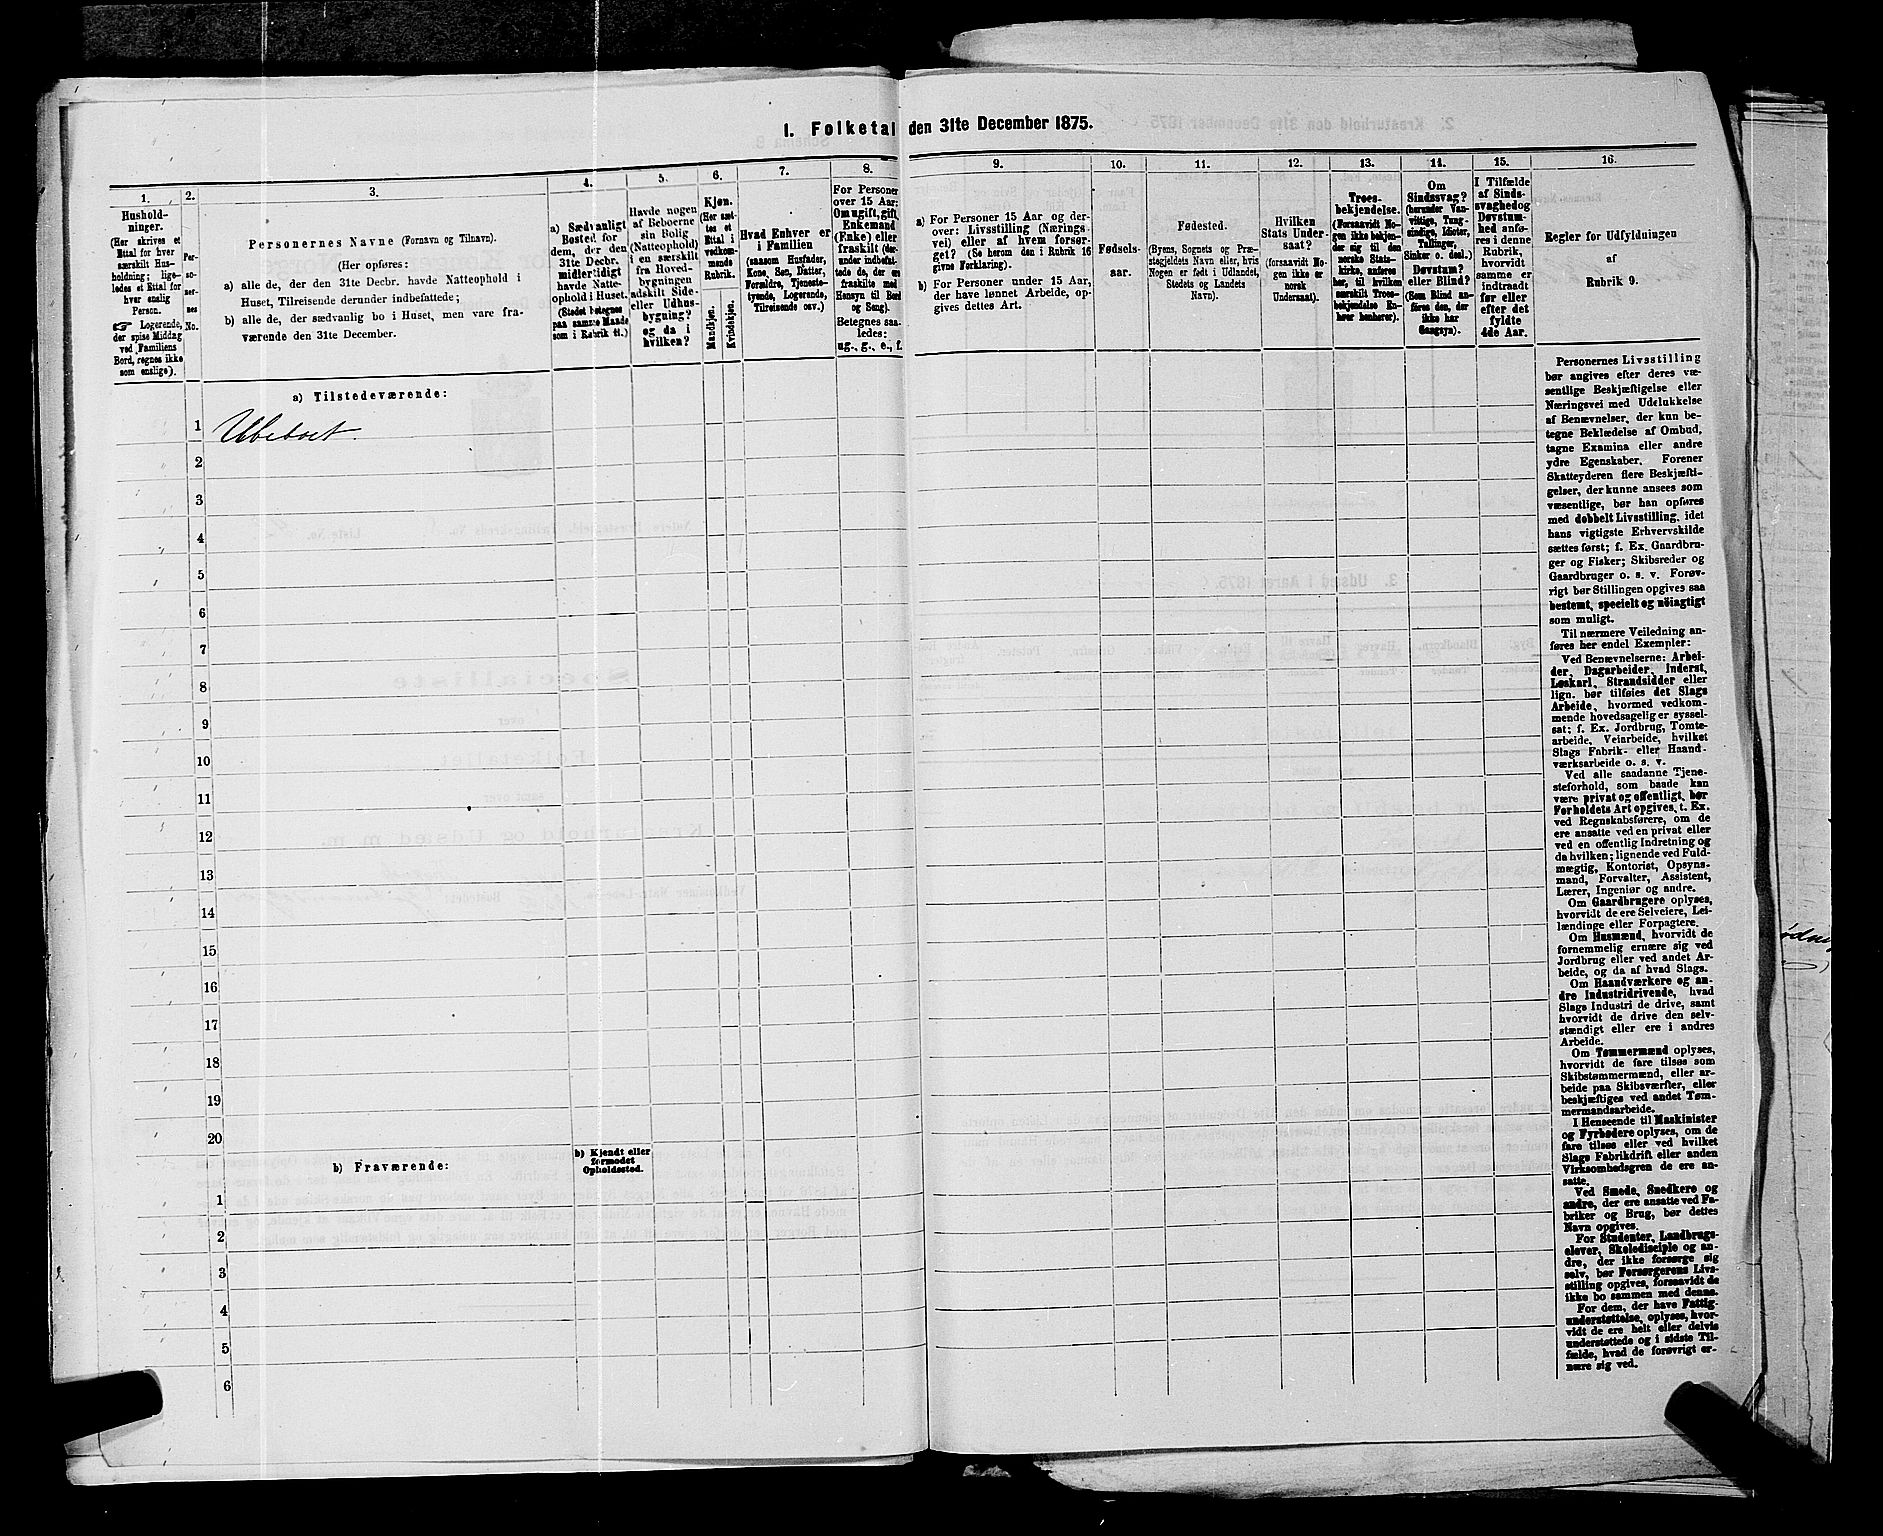 1. Folketal den 31te December 1875.
1.
2.
3.
4.
5.
6.
7.
8.
9.
10.
11.
12.
13.
14.
15.
16.
Hushold-
ninger.
(Her skrives et
Ettal for hver
særskilt Hus-
holdning; lige-
ledes et Ettal for
hver enslig
Person.
☞ Logerende,
der spise Middag
ved Familiens
Bord, regnes ikke
som enslige).
Per-
so-
ner-
nes
No.
Personernes Navne (Fornavn og Tilnavn).
(Her opføres:
a) alle de, der den 31te Decbr. havde Natteophold i
Huset, Tilreisende derunder indbefattede;
b) alle de, der sædvanlig bo i Huset, men vare fra-
værende den 31te December.
a) Sædvanligt
Bosted for
dem, der den
31te Decbr.
midlertidigt
havde Natte-
ophold i Huset.
(Stedet betegnes
paa samme Maade
som i Rubrik 11.)
Havde nogen
af Beboerne
sin Bolig
(Natteophold)
i en særskilt
fra Hoved-
bygningen
adskilt Side-
eller Udhus-
bygning?
og da i
hvilken?
Kjøn.
(Her sæt-
tes et
Ettal i
vedkom-
mende
Rubrik.
Mandkjøn.
Kvindekjøn.
Hvad Enhver er
i Familien
(saasom Husfader,
Kone, Søn, Datter,
Forældre, Tjeneste-
tyende, Logerende,
Tilreisende osv.)
For Personer
over 15 Aar:
Om ugift, gift,
Enkemand
(Enke) eller
fraskilt (der-
under indbefat-
tede de, der ere
fraskilte med
Hensyn til Bord
og Seng).
Betegnes saa-
ledes:
ug., g., e., f.
a) For Personer 15 Aar og der-
over: Livsstilling (Nærings-
vei) eller af hvem forsør-
get? (Se herom den i Rubrik 16
givne Forklaring).
b) For Personer under 15 Aar,
der have lønnet Arbeide, op-
gives dettes Art.
Fødsels-
aar.
Fødested.
(Byens, Sognets og Præ-
stegjeldets Navn eller, hvis
Nogen er født i Udlandet,
Stedets og Landets
Navn).
Hvilken
Stats Under-
saat?
(forsaavidt No-
gen ikke er
norsk
Undersaat).
Troes-
bekjendelse.
(Forsaavidt No-
gen ikke bekjen-
der sig til den
norske Stats-
kirke, anføres
her, til hvilken
særskilt Troes-
bekjendelse En-
hver henhører).
Om
Sindssvag?
(herunder Van-
vittige, Tung-
sindige, Idioter,
Tullinger,
Sinker o. desl.)
Døvstum?
eller Blind?
(Som Blind an-
føres den, der
ikke har
Gangsyn).
I Tilfælde
af Sinds-
svaghed og
Døvstum-
hed anfø-
res i denne
Rubrik,
hvorvidt
samme er
indtraadt
før eller
efter det
fyldte
4de Aar.
Regler for Udfyldningen
af
Rubrik 9.
a) Tilstedeværende:
1 Ubeboet.
2
3
4
5
6
7
8
9
10
11
12
13
14
15
16
17
18
19
20
b) Fraværende:
b) Kjendt eller
formodet
Opholdssted.
1
2
3
4
5
6
Personernes Livsstilling
bør angives efter deres væ-
sentlige Beskjæftigelse eller
Næringsvei med Udelukkelse
af Benævnelser, der kun be-
tegne Beklædelse af Ombud,
tagne Examina eller andre
ydre Egenskaber. Forener
Skatteyderen flere Beskjæfti-
gelser, der kunne ansees som
væsentlige, bør han opføres
med dobbelt Livsstilling, idet
hans vigtigste Erhvervskilde
sættes først; f. Ex. Gaardbru-
ger og Fisker; Skibsreder og
Gaardbruger o. s. v. Forøv-
rigt bør Stillingen opgives saa
bestemt, specielt og nöiagtigt
som muligt.
Til nærmere Veiledning an-
føres her endel Exempler:
Ved Benævnelserne: Arbei-
der, Dagarbeider, Inderst,
Løskarl, Strandsidder eller
lign. bør tilføies det Slags
Arbeide, hvormed vedkom-
mende hovedsagelig er syssel-
sat; f. Ex. Jordbrug, Tomte-
arbeide, Veiarbeide, hvilket
Slags Fabrik- eller Haand-
værksarbeide o. s. v.
Ved alle saadanne Tjene-
steforhold, som baade kan
være privat og offentligt, bør
Forholdets Art opgives, t. Ex.
ved Regnskabsførere, om de
ere ansatte ved en privat eller
ved en offentlig Indretning og
da hvilken; lignende ved Fuld-
mægtig, Kontorist, Opsyns-
mand, Forvalter, Assistent,
Lærer, Ingeniør og andre.
Om Gaardbrugere oplyses,
hvorvidt de ere Selveiere, Lei-
lændinge eller Forpagtere.
Om Husmænd, hvorvidt de
fornemmelig ernære sig ved
Jordbrug eller ved andet Ar-
beide, og da af hvad Slags.
Om Haandværkere og an-
dre Industridrivende, hvad
Slags Industri de drive, samt
hvorvidt de drive den selv-
stændigt eller ere i andres
Arbeide.
Om Tømmermænd oplyses,
hvorvidt de fare tilsøs som
Skibstømmermænd, eller ar-
beide paa Skibsværfter, eller
beskjæftiges ved andet Tøm-
mermandsarbeide.
I Henseende til Maskinister
og Fyrbødere oplyses, om de
fare tilsøs eller ved hvilket
Slags Fabrikdrift eller anden
Virksomhedsgren de ere an-
satte.
Ved Smede, Snedkere og
andre, der ere ansatte ved Fa-
briker og Brug, bør dettes
Navn opgives.
For Studenter, Landbrugs-
elever, Skoledisciple og an-
dre, der ikke forsørge sig
selv, bør Forsørgerens Livs-
stilling opgives, forsaavidt de
ikke bo sammen med denne.
For dem, der have Fattig-
understøttelse, oplyses, hvor-
vidt de ere helt eller delvis
understøttede og i sidste Til-
fælde, hvad de forøvrigt er-
nære sig ved.